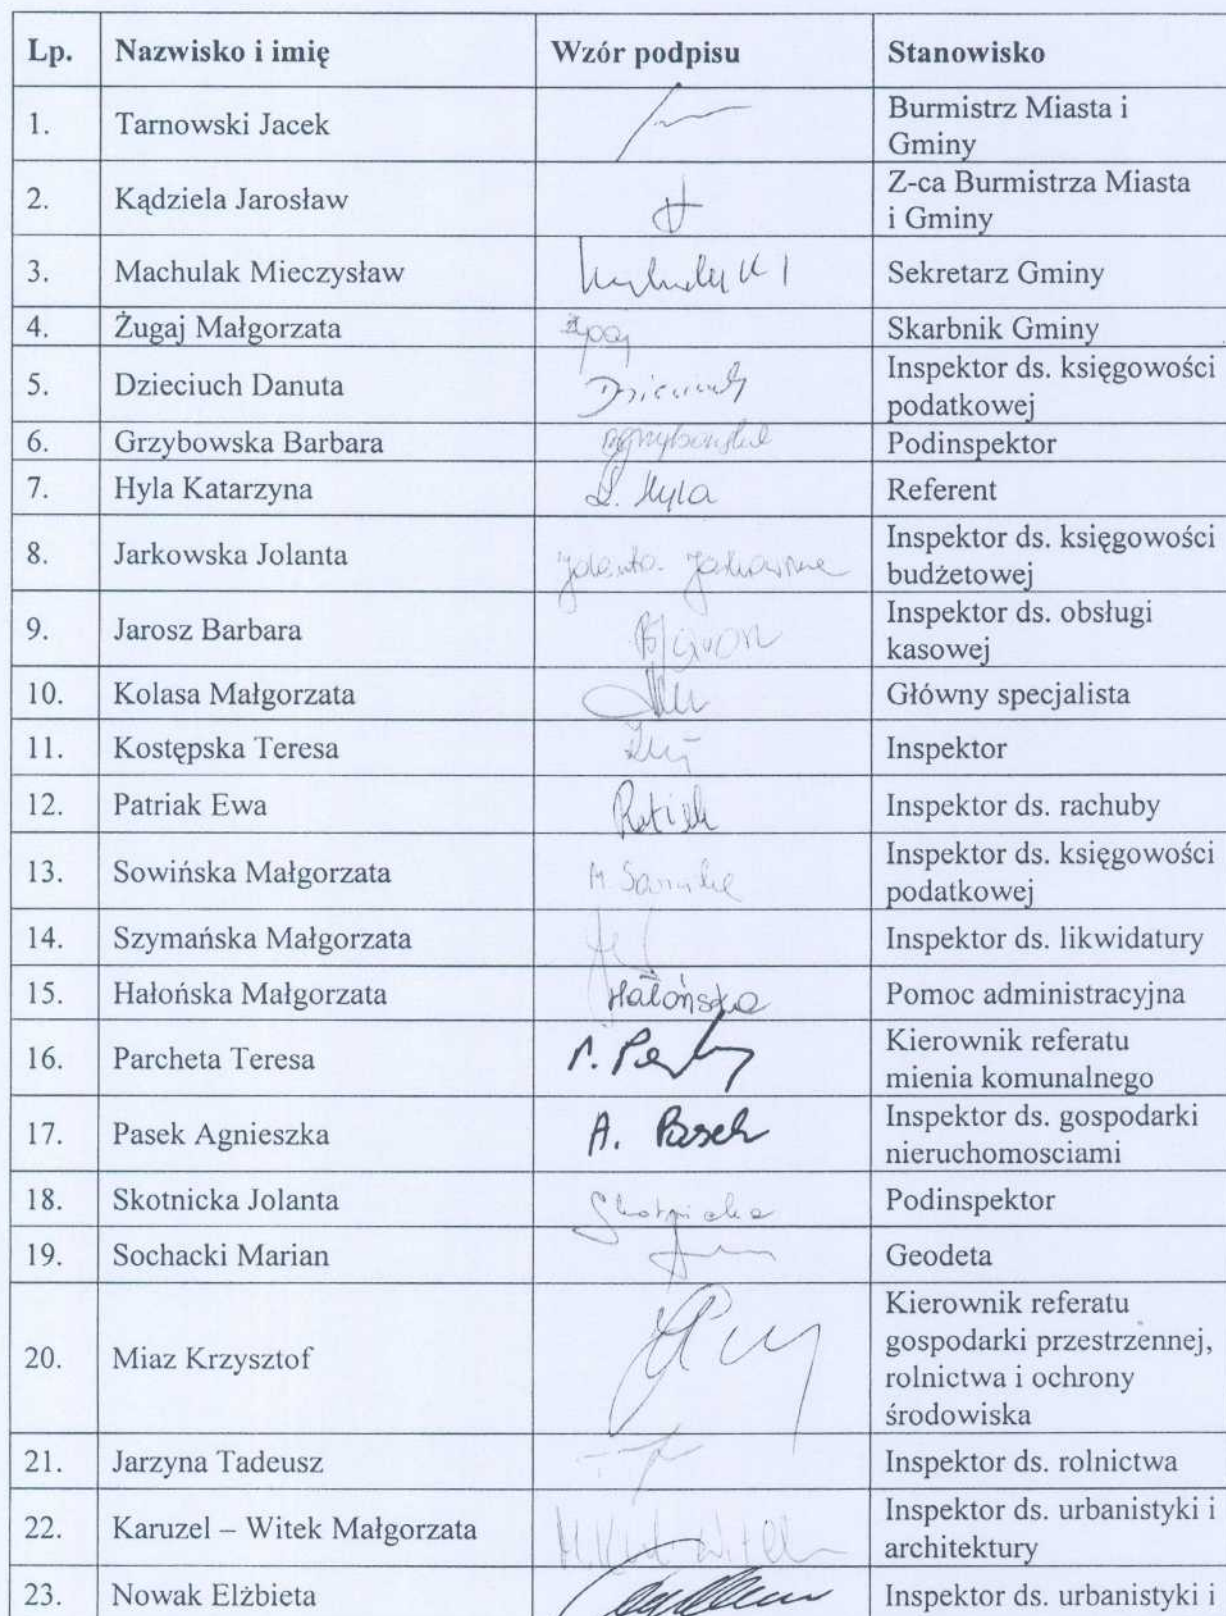 Lp. Nazwisko i imię Wzór podpisu Stanowisko
1. Tarnowski Jacek Burmistrz Miasta i
Gminy
2. Kądziela Jarosław Z-ca Burmistrza Miasta
i Gminy
3. Machulak Mieczysław Sekretarz Gminy
4. Żugaj Małgorzata Skarbnik Gminy
5. Dzieciuch Danuta Inspektor ds. księgowości
podatkowej
6. Grzybowska Barbara Podinspektor
7. Hyla Katarzyna Hyla Referent
8. Jarkowska Jolanta Jolanta Inspektor ds. księgowości
budżetowej
9. Jarosz Barbara Inspektor ds. obsługi
kasowej
10. Kolasa Małgorzata Główny specjalista
11. Kostępska Teresa Inspektor
12. Patriak Ewa Inspektor ds. rachuby
13. Sowińska Małgorzata Inspektor ds. księgowości
podatkowej
14. Szymańska Małgorzata Inspektor ds. likwidatury
15. Hałońska Małgorzata Hałońska Pomoc administracyjna
16. Parcheta Teresa Kierownik referatu
mienia komunalnego
17. Pasek Agnieszka A. Pasek Inspektor ds. gospodarki
nieruchomosciami
18. Skotnicka Jolanta Skotnicka Podinspektor
19. Sochacki Marian Geodeta
20. Miaz Krzysztof Kierownik referatu
gospodarki przestrzennej,
rolnictwa i ochrony
środowiska
21. Jarzyna Tadeusz Inspektor ds. rolnictwa
22. Karuzel – Witek Małgorzata Inspektor ds. urbanistyki i
architektury
23. Nowak Elżbieta Inspektor ds. urbanistyki i